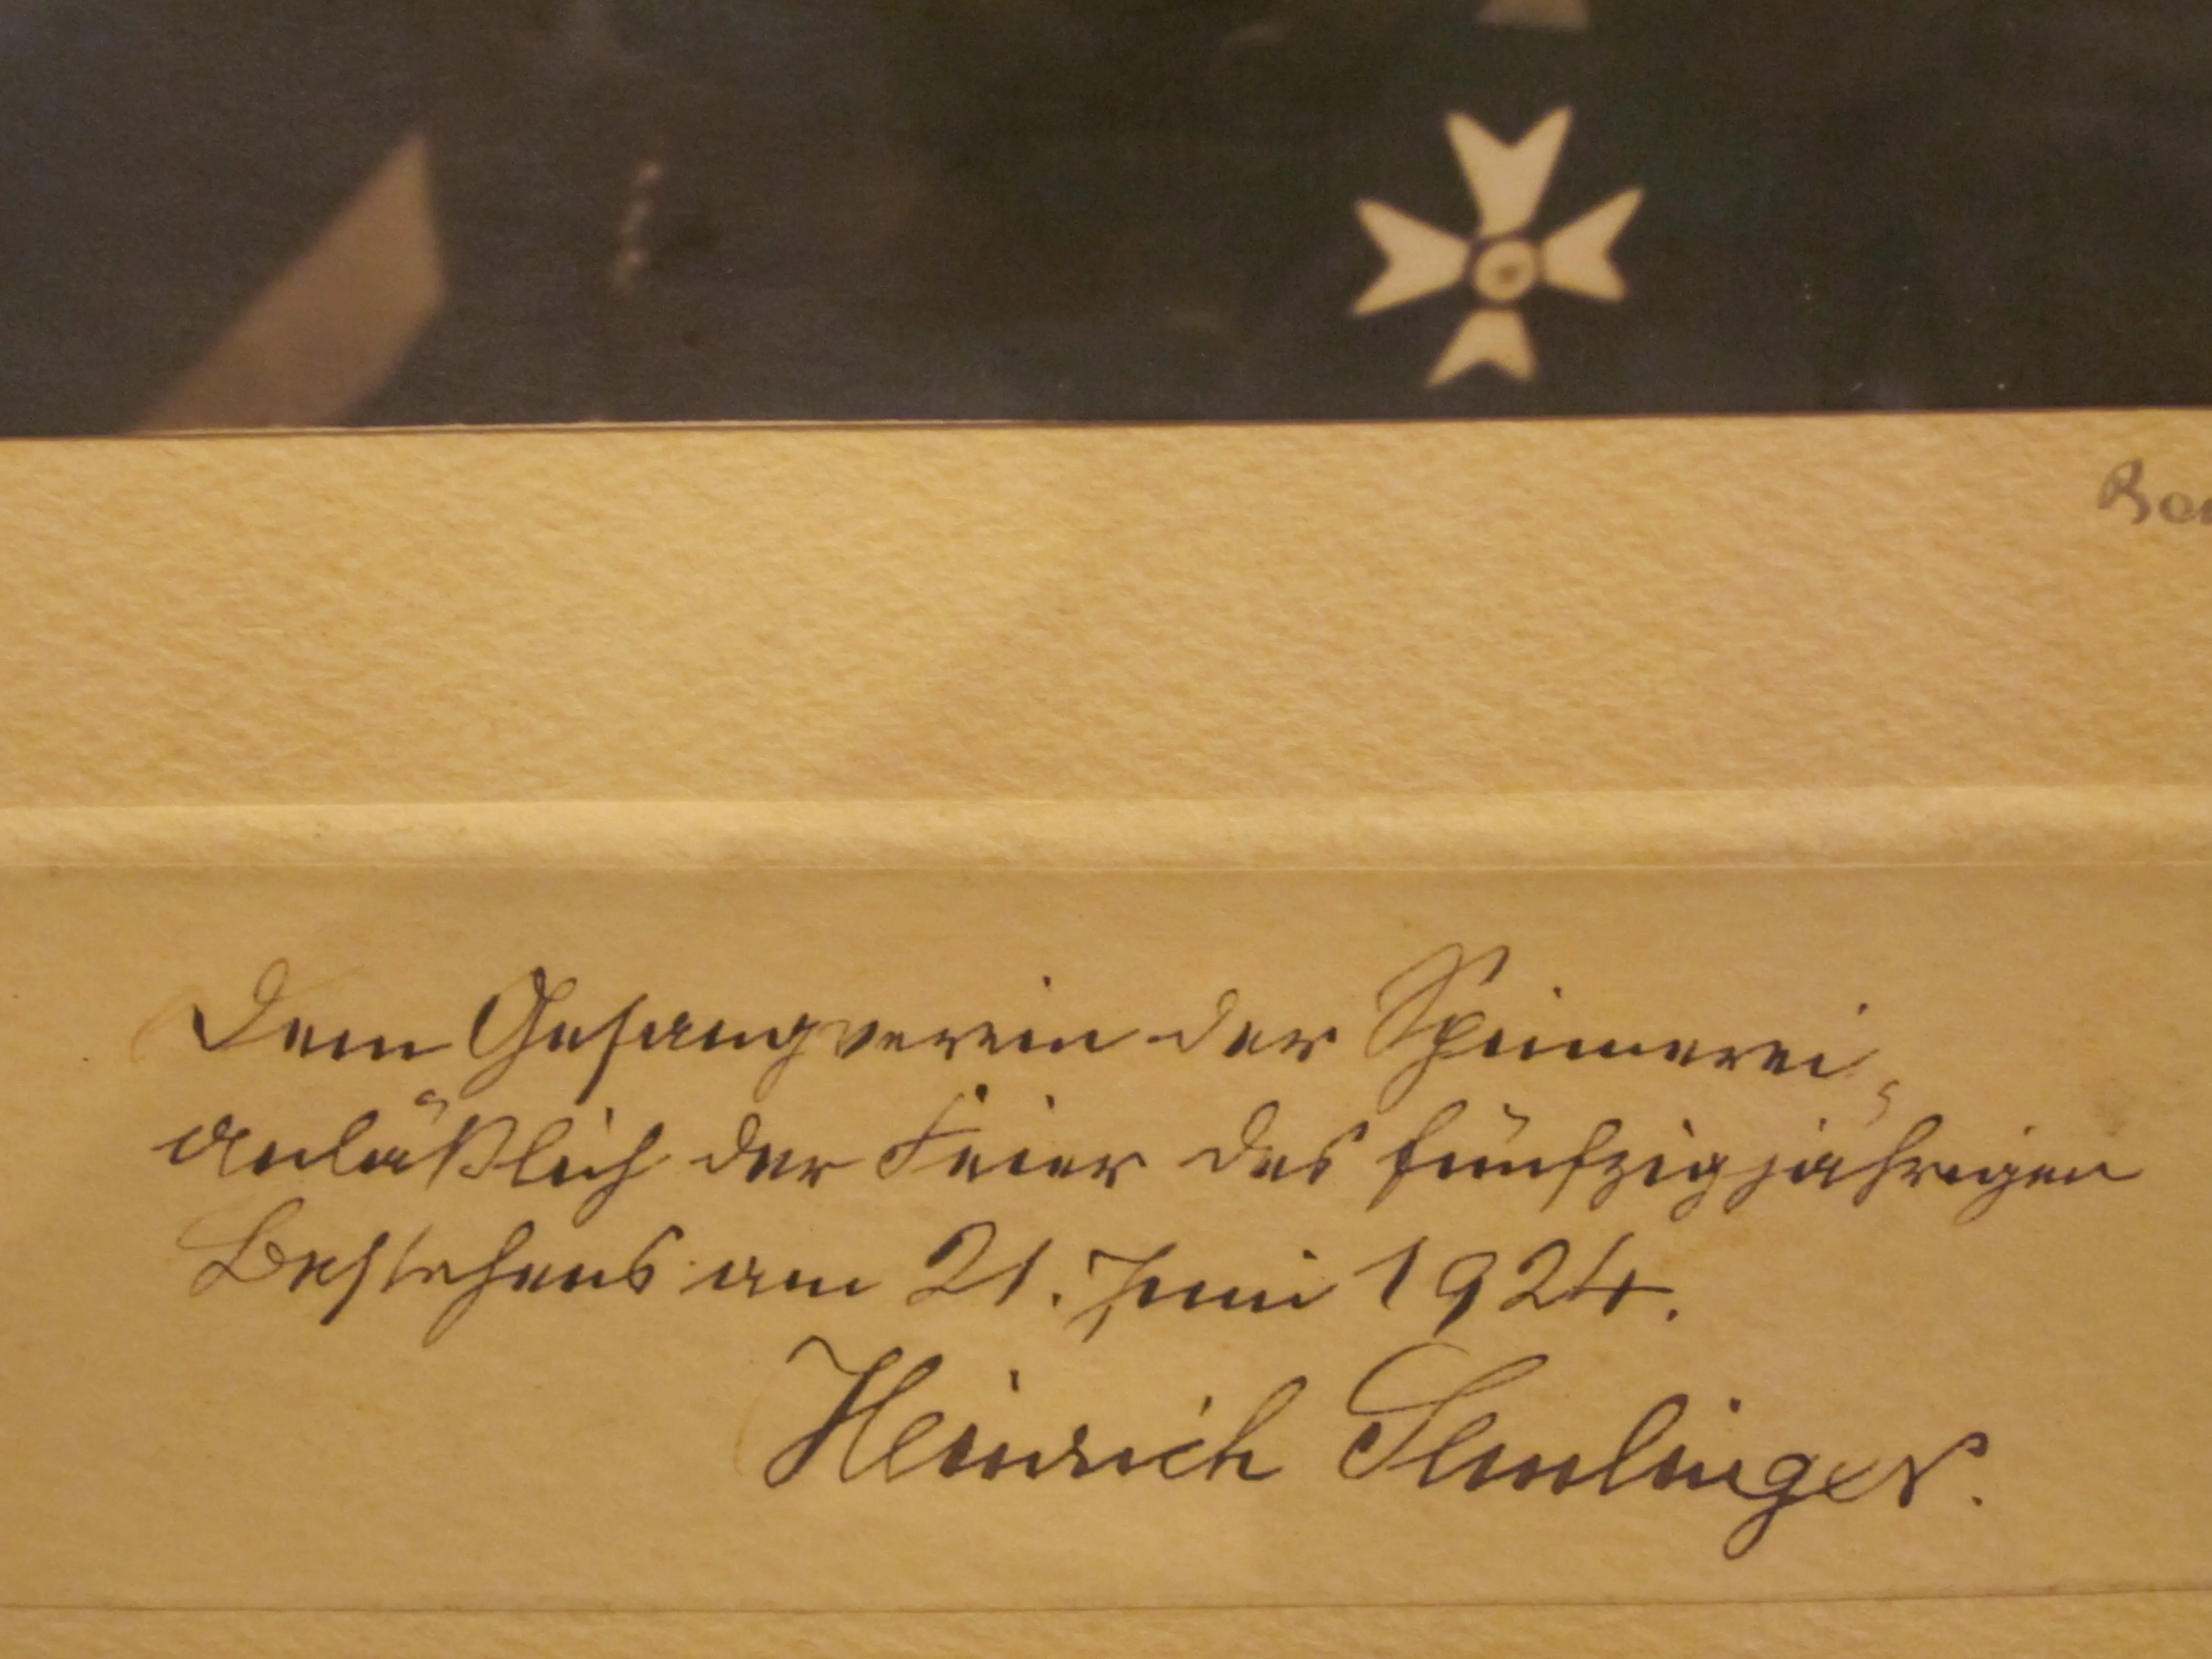 Dem Gesangverein der Spinnerei,
anläßlich der Feier des fünfzigjährigen
Bestehens am 21. Juni 1924.
Heinrich